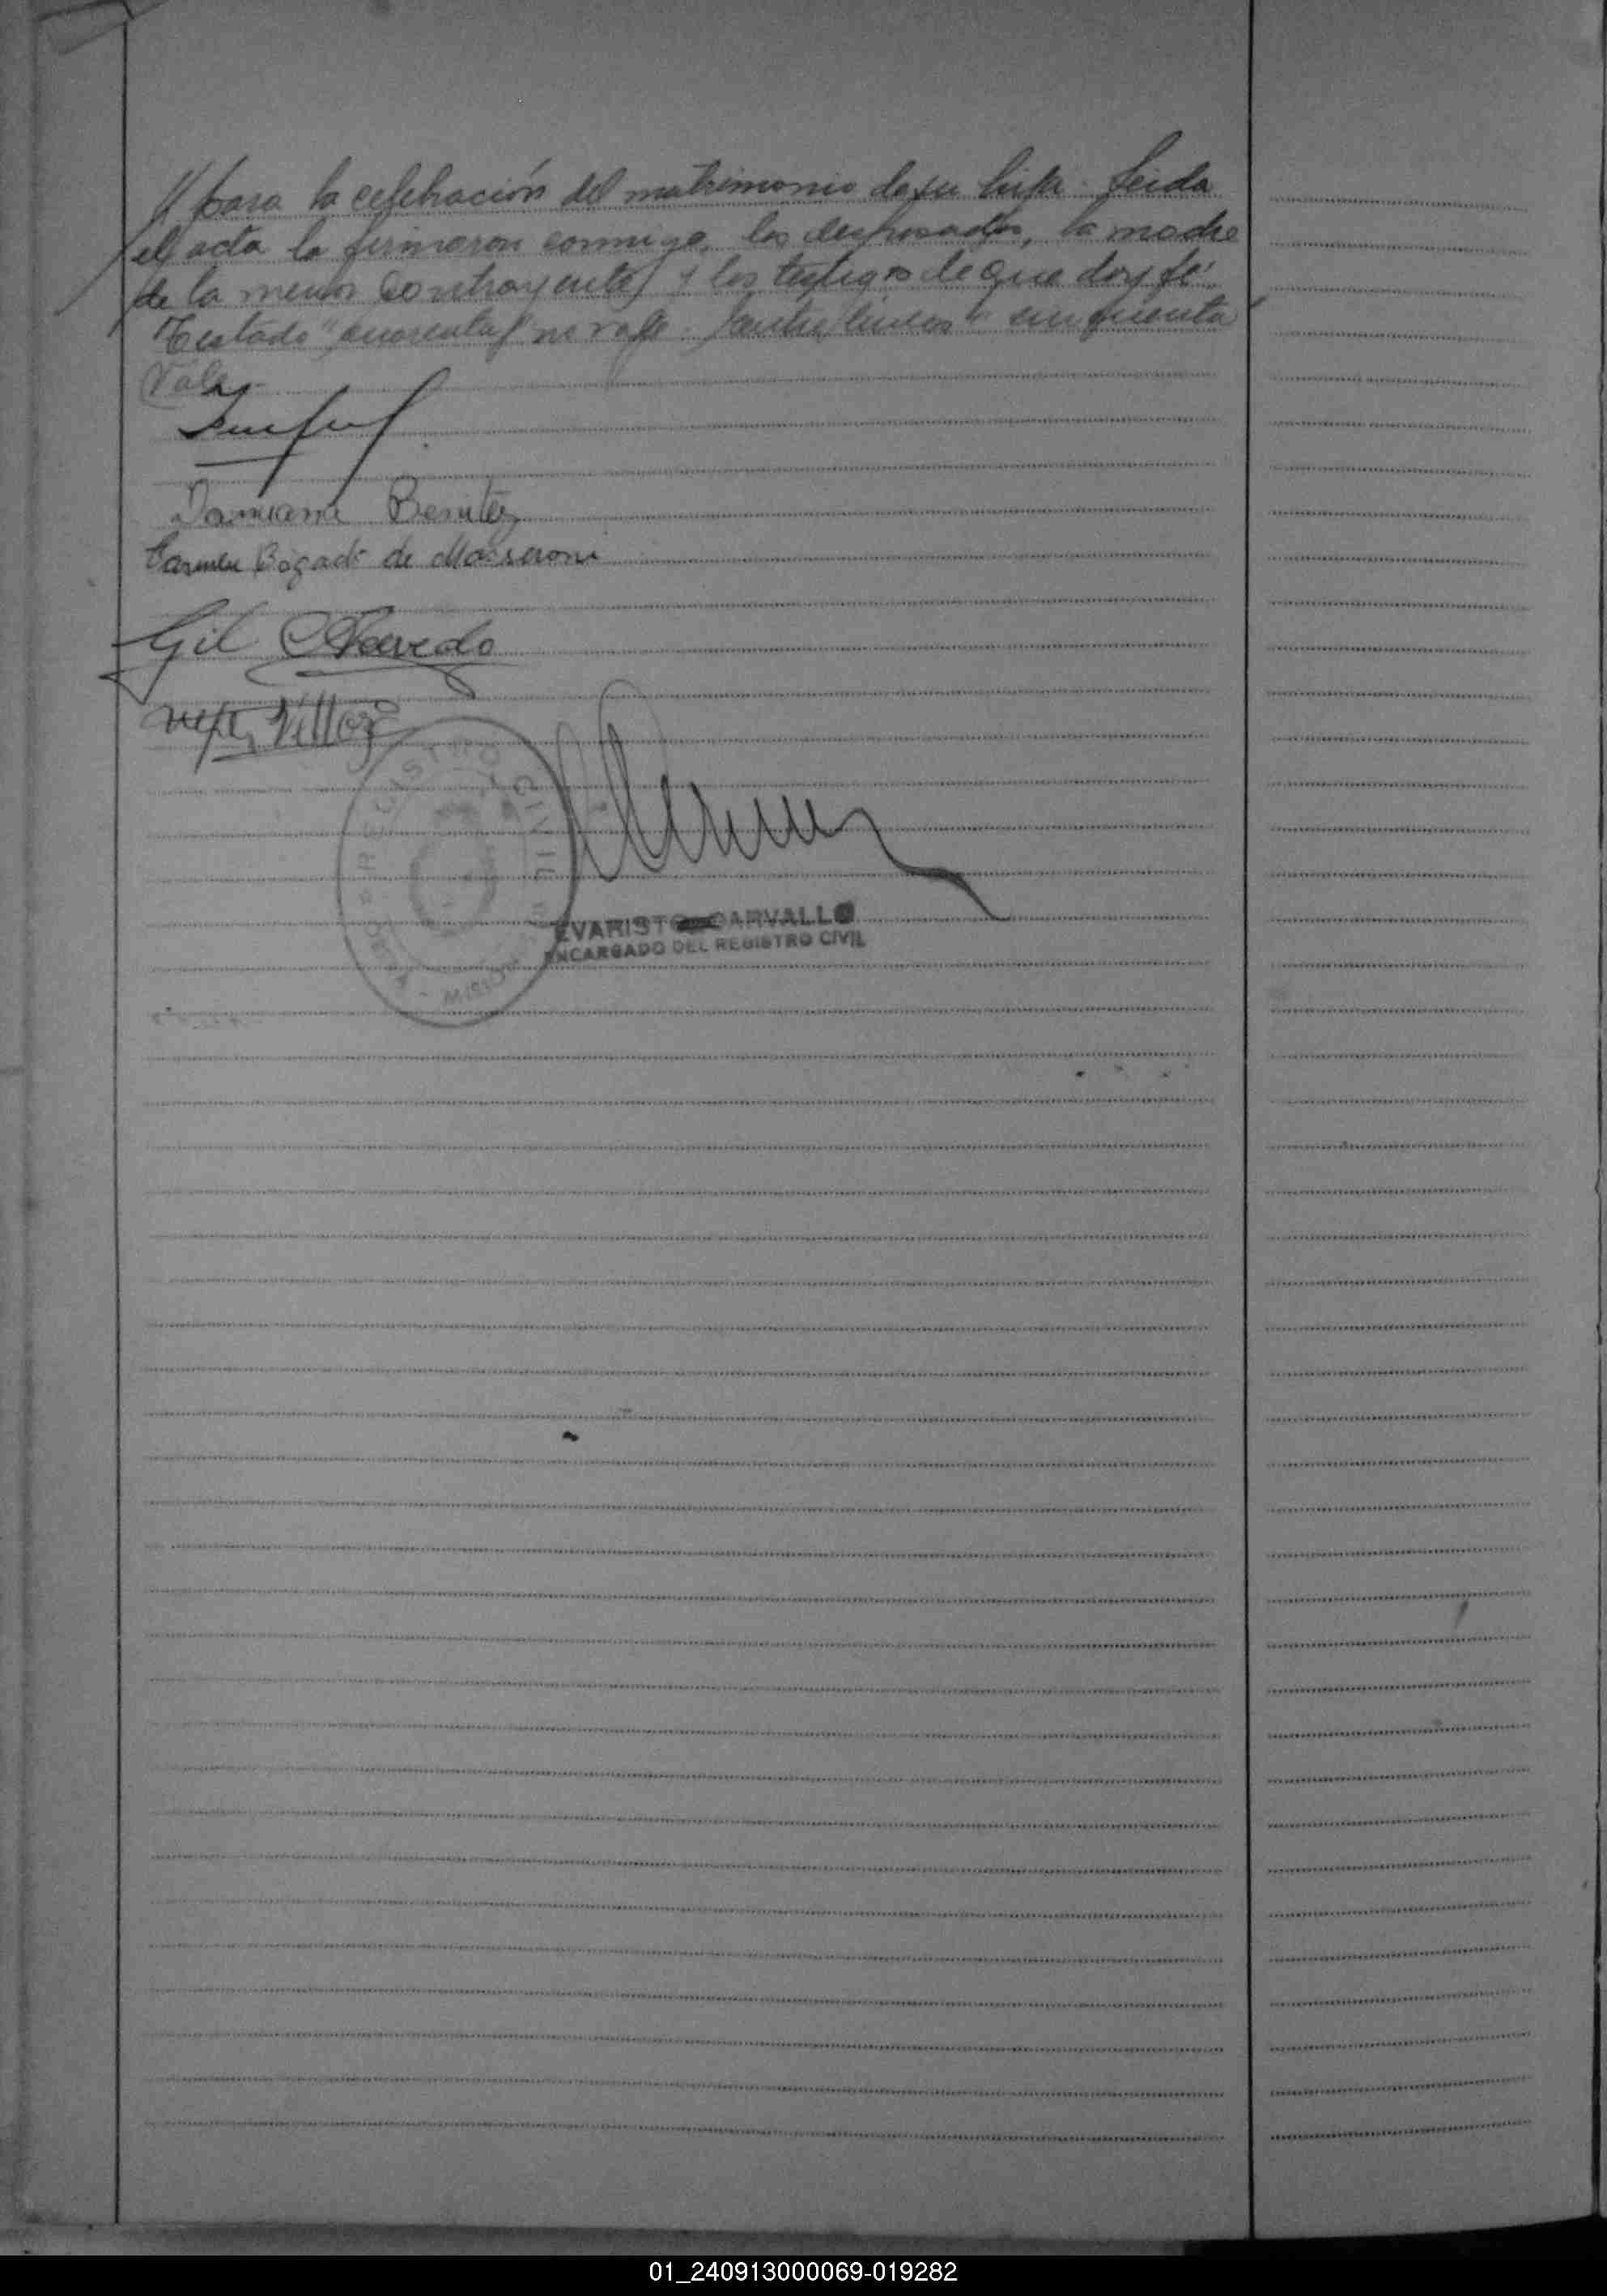 // para la celebración del matrimonio de su hija. Leida
el acta la firmaron conmigo, los desposados, la madre
de la menor contrayente y los testigos de que doy fé.
Testado "cuarenta" no vale. Entre lineas "cincuenta"
Vale.-
Damiana Benitez
Carmen Bogado de Masseroni
Gil Acevedo
Villar
REGISTRO CIVIL
MISIONES
EVARISTO CARVALLO
ENCARGADO DEL REGISTRO CIVIL
01_240913000069-019282